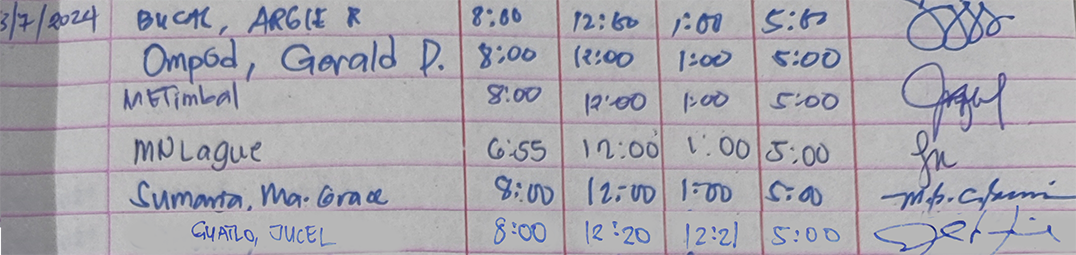 3/7/2024 BUCAL, ARGIE R 8:00 12:00 1:00 5:00
Ompod, Gerald D. 8:00 12:00 1:00 5:00
METimbal 8:00 12:00 1:00 5:00
MNLague 6:55 12:00 1:00 5:00
Sumanta, Ma. Grace 8:00 12:00 1:00 5:00
JUCEL 8:00 12:20 12:21 5:00